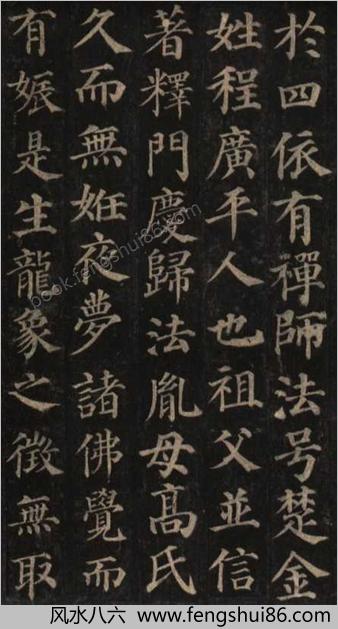 於四依有禪師法号楚金
姓程廣平人也祖父並信
著釋門慶歸法胤母高氏
久而無姙夜夢諸佛覺而
有娠是生龍象之徵無取
book.fengshui86.com
风水八六 www.fengshui86.com